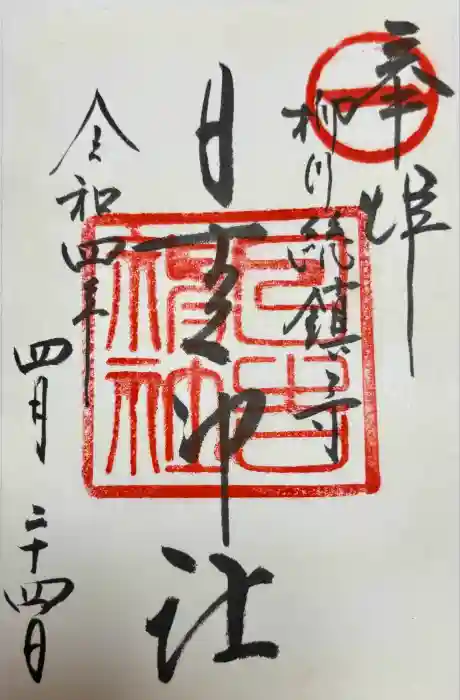 奉拝
柳川総鎮守
日吉神社
日吉神社
令和四年
四月
二十四日